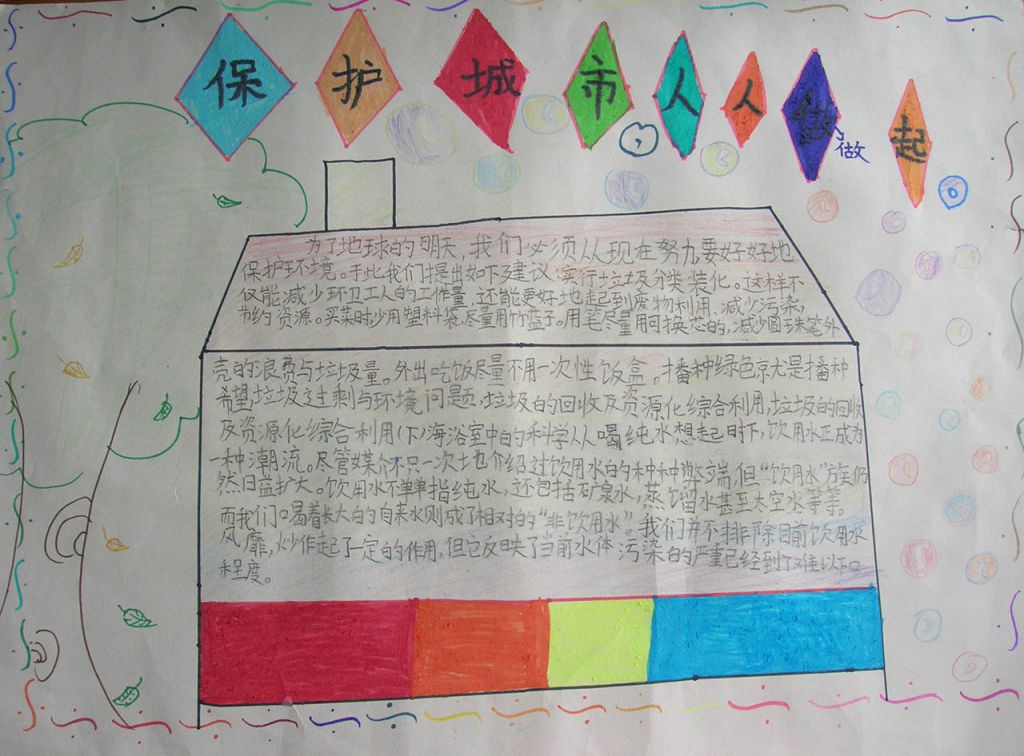 保护城市,人人做起
做
为了地球的明天,我们必须从现在努力,要好好地
保护环境。于此我们提出如下建议:实行垃圾分类装化。这样不
仅能减少环卫工人的工作量,还能更好地起到废物利用,减少污染,
节约资源。买菜时少用塑料袋,尽量用竹篮子。用笔尽量用可换芯的,减少圆珠笔外
壳的浪费与垃圾量。外出吃饭尽量不用一次性饭盒。播种绿色就是播种
希望垃圾过剩与环境问题,垃圾的回收及资源化综合利用,垃圾的回收
及资源化综合利用(下)海浴室中的科学从人喝纯水想起时下,饮用水正成为
一种潮流。尽管媒介不只一次地介绍过饮用水的种种弊端,但“饮用水”族仍
然日益扩大。饮用水不单单指纯水,还包括矿泉水,蒸馏水甚至太空水等等。
而我们喝着长大的自来水则成了相对的“非饮用水”。我们并不排除目前饮用水
风靡,炒作起了一定的作用,但它反映了当前水体污染的严重已经到了难以
程度。